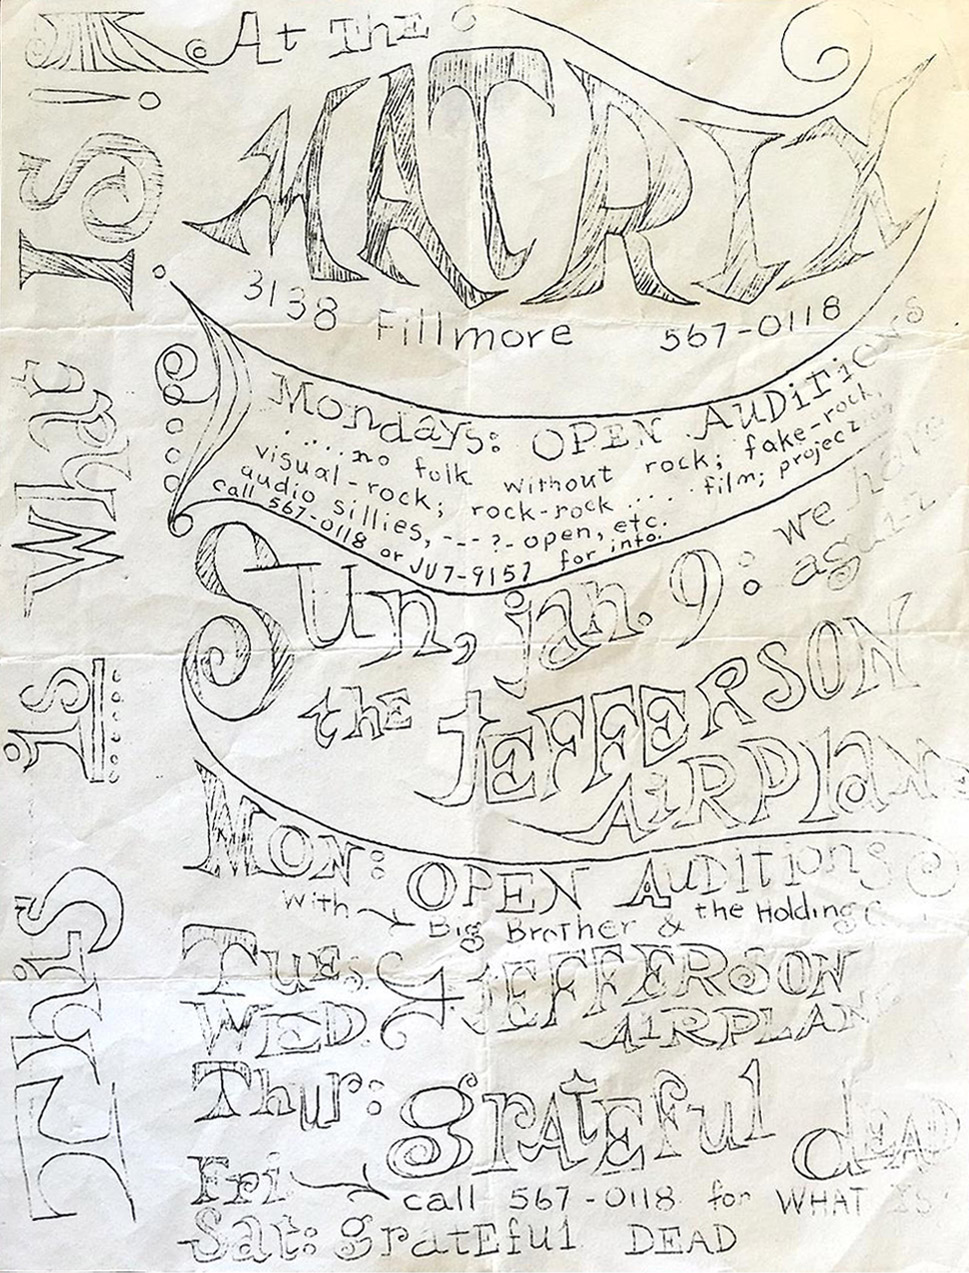 This is What IS!
At The
MATRIX
3138 Fillmore 567-0118
Mondays: OPEN AuDitions
.....no folk without rock; fake-rock,
visual-rock; rock-rock .... film; projection
audio sillies, ---?- open, etc.
call 567-0118 or JU7-9157 for info.
Sun, jan. 9: we have
again
the JEFFERSON
AiRPlane
Mon: OPEN AuDitions
with Big Brother & the Holding C
Tues. & JEFFERSON
WED. AiRPLANE
Thur: gratEful dEAD
Fri call 567-0118 for WHAT IS!
Sat: gratEful DEAD